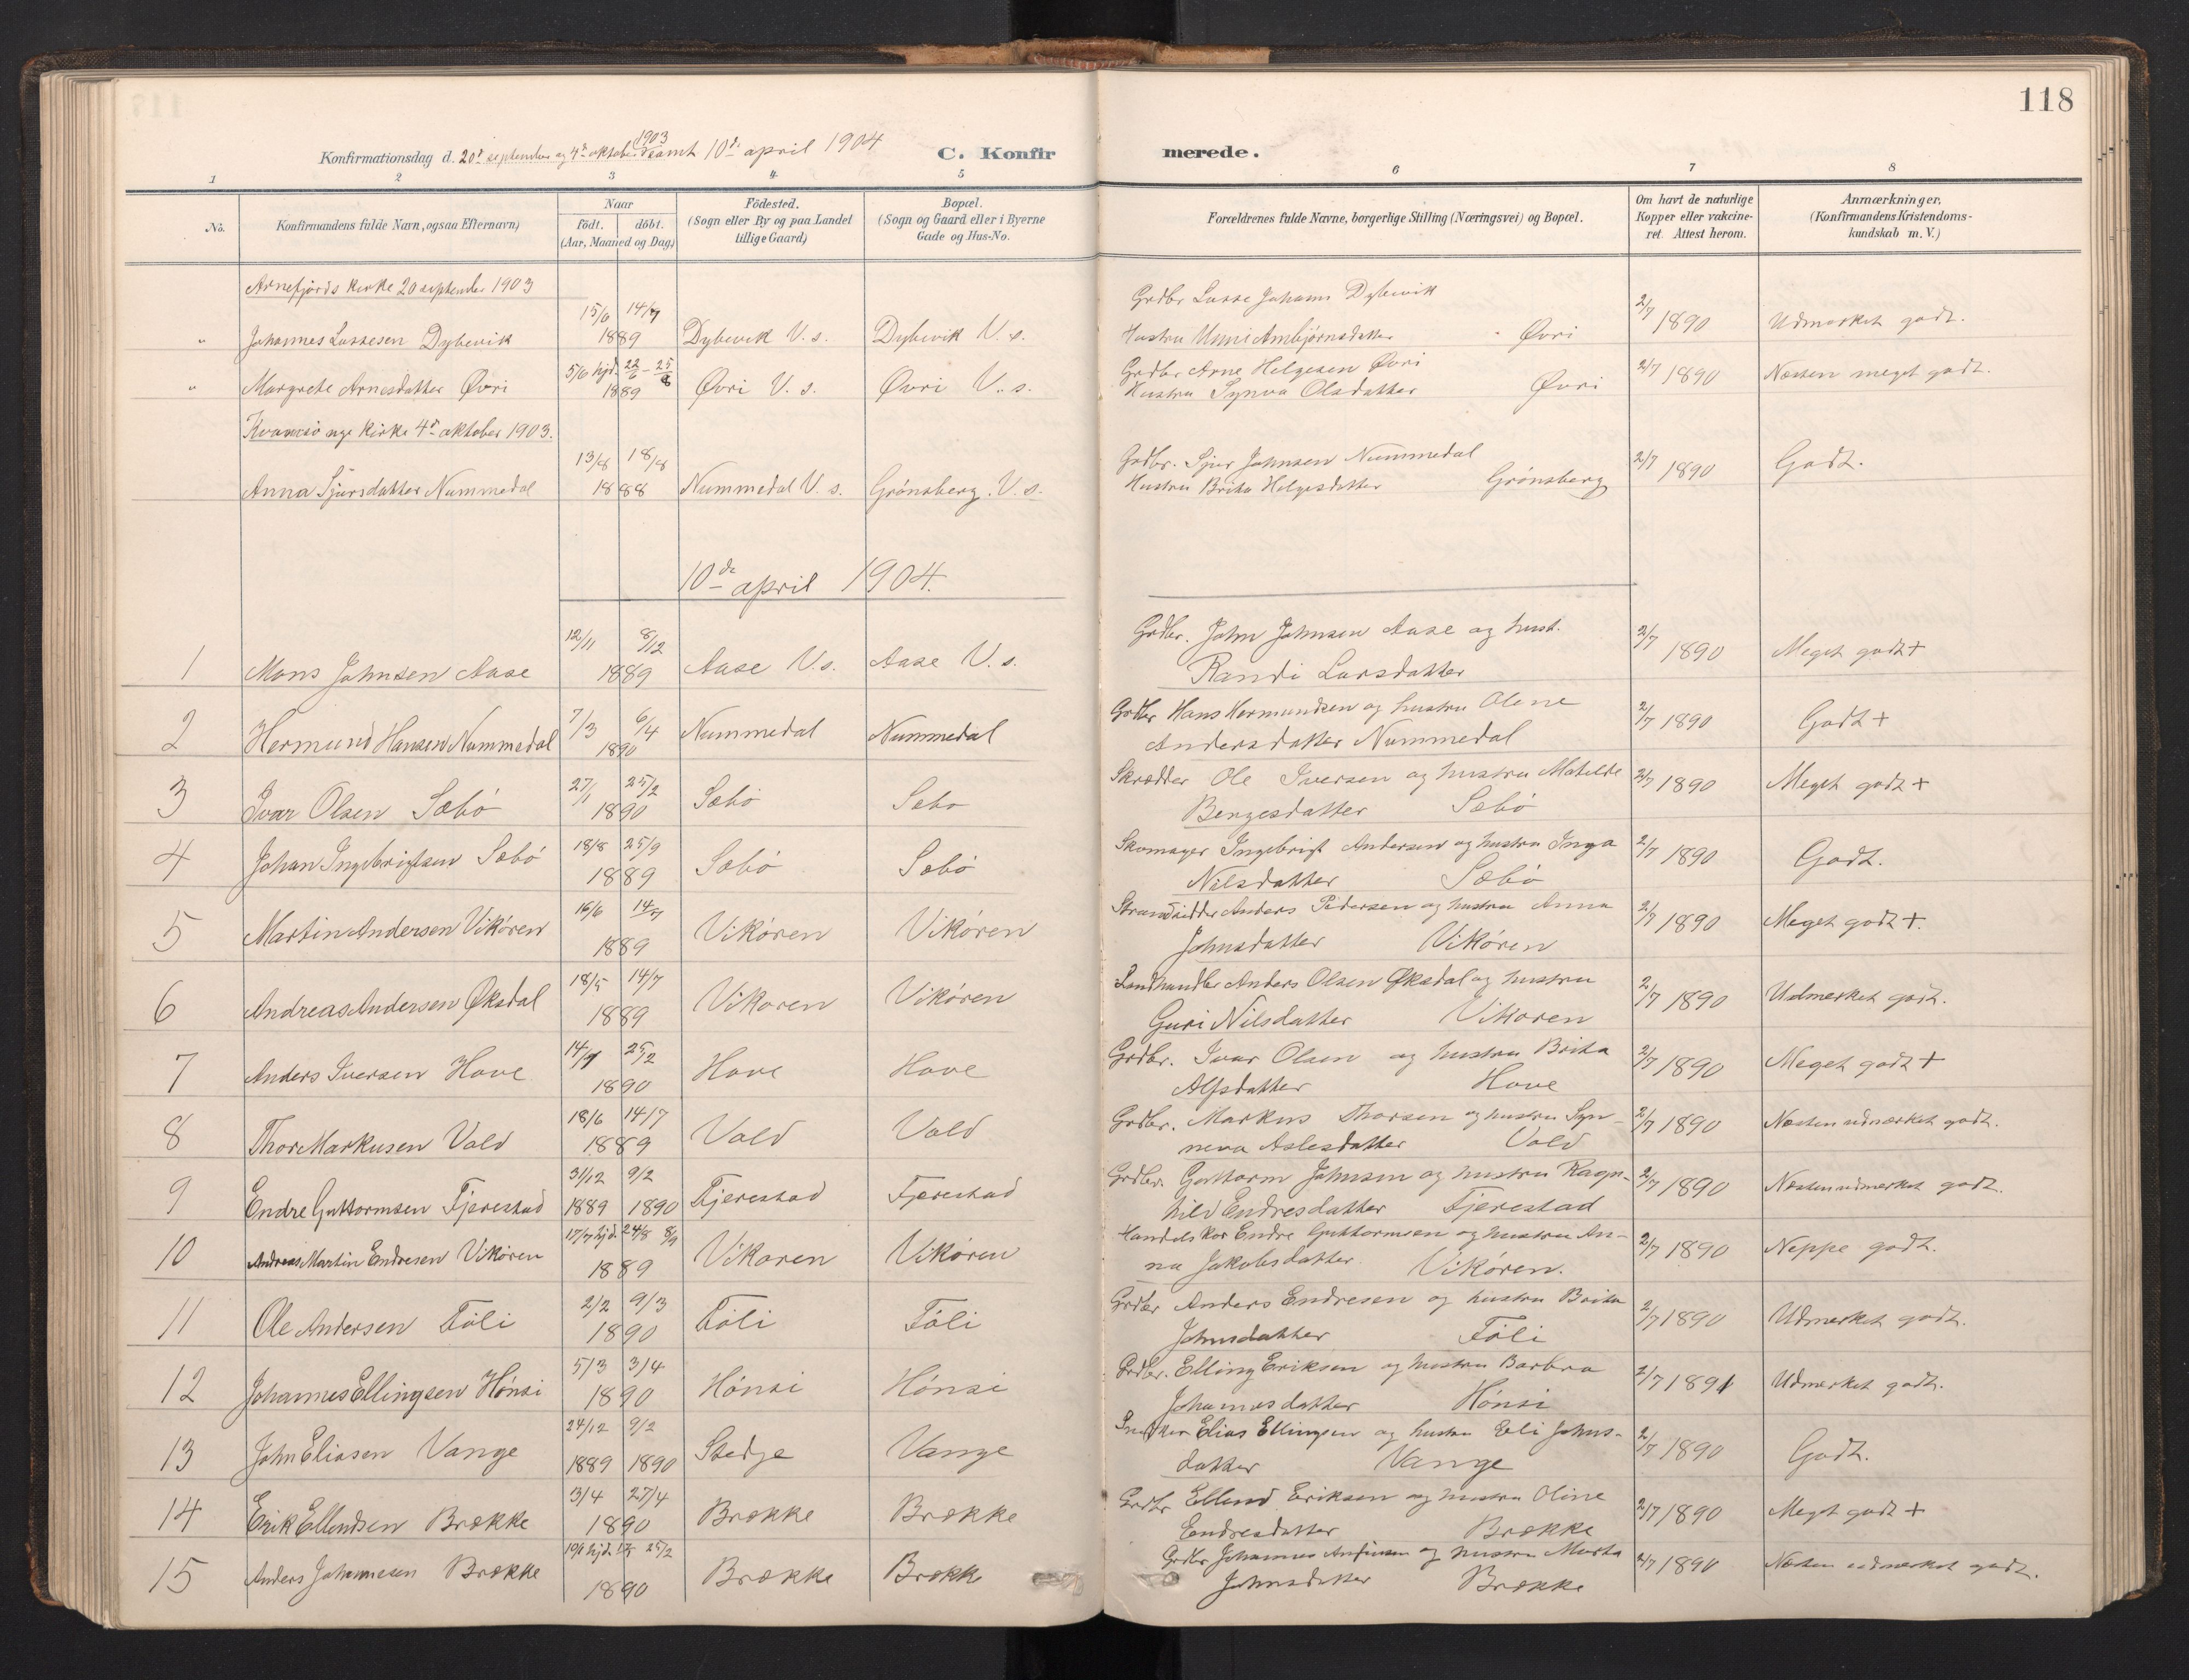 118
Konfirmationsdag d. 20de september og 4de oktober 1903 samt 10de april 1904
C. Konfirmerede.
1 2 3 4 5 6 7 8
No.
Konfirmandens fulde Navn, ogsaa Efternavn)
Naar
födt. döbt.
(Aar, Maaned og Dag)
Födested.
(Sogn eller By og paa Landet
tillige Gaard)
Bopæl.
(Sogn og Gaard eller i Byerne
Gade og Hus-No.
Forældrenes fulde Navne, borgerlige Stilling (Næringsvei) og Bopæl.
Om havt de naturlige
Kopper eller vakcine-
ret. Attest herom.
Anmærkninger,
(Konfirmandens Kristendoms-
kundskab m. V.)
Arnefjords kirke 20 september 1903
15/6 14/7 Grdbr Lasse Johans Dybevik 2/7
" Johannes Lassesen Dybevik 1889 Dybevik V. s. Dybevik V. s. Hustru Unni Ambjørnsdatter Øvri 1890 Udmerket godt.
5/6 hjd. 22/6 - 25/8 Grdbr Arne Helgesen Øvri
" Margrete Arnesdatter Øvri 1889 Øvri V. s. Øvri V. s. Hustru Synva Olsdatter Øvri 2/7 1890 Næsten meget godt.
Kvamsø nye kirke 4de oktober 1903.
13/8 18/8 Grdbr. Sjur Johnsen Nummedal 2/7
Anna Sjursdatter Nummedal 1888 Nummedal V. s. Grønsberg V. s. Hustru Brita Helgesdatter Grønsberg 1890 Godt.
10de april 1904.
12/11 8/12 Grdbr. John Johnsen Aase og hust. 2/7
1 Mons Johnsen Aase 1889 Aase V. s. Aase V. s. Randi Larsdatter 1890 Meget godt +
7/3 6/4 Grdbr Hans Hermundsen og hustru Oline
2 Hermund Hansen Nummedal 1890 Nummedal Nummedal Andersdatter Nummedal 2/7 1890 Godt +
27/1 25/2 Skrædder Ole Iversen og hustru Matilde
3 Ivar Olsen Sæbø 1890 Sæbø Sæbø Bergesdatter Sæbø 2/7 1890 Meget godt +
18/8 25/9 Skomager Ingebrigt Andersen og hustru Inga
4 Johan Ingebrigtsen Sæbø 1889 Sæbø Sæbø Nilsdatter Sæbø 2/7 1890 Godt.
16/6 14/7 Strandsidder Anders Pedersen og hustru Anna
5 Martin Andersen Vikøren 1889 Vikøren Vikøren Johnsdatter Vikøren 2/7 1890 Meget godt +.
18/5 14/7 Landhandler Anders Olsen Øksdal og hustru
6 Andreas Andersen Øksdal 1889 Vikøren Vikøren Guri Nilsdatter Vikøren 2/7 1890 Udmerket godt.
14/1 25/2 Grdbr. Ivar Olsen og hustru Brita
7 Anders Iversen Hove 1890 Hove Hove Alfsdatter Hove 2/7 1890 Meget godt +
18/6 14/7 Grdbr. Markus Thorsen og hustru Syn-
8 Thor Markusen Vold 1889 Vold Vold neva Aslesdatter Vold 2/7 1890 Næsten udmerket godt.
31/12 9/2 Grdbr. Guttorm Johnsen og hustru Ragn-
9 Endre Guttormsen Fjerestad 1889 1890 Fjerestad Fjerestad hild Endresdatter Fjerestad 2/7 1890 Næsten udmerket godt.
17/7 hjd. 24/8 8/9 Handelskar Endre Guttormsen og hustru An-
10 Andreas Martin Endresen Vikøren 1889 Vikøren Vikøren na Jakobsdatter. Vikøren. 2/7 1890 Neppe godt.
2/2 9/3 Grdbr Anders Endresen og hustru Brita
11 Ole Andersen Føli 1890 Føli Føli Johnsdatter Føli 2/7 1890 Udmerket godt.
5/3 3/4 Grdbr. Elling Eriksen og hustru Barbra
12 Johannes Ellingsen Hønsi 1890 Hønsi Hønsi Johannesdatter Hønsi 2/7 1891 Udmerket godt.
24/12 9/2 Snekker Elias Ellingsen og hustru Eli Johns-
13 John Eliasen Vange 1889 1890 Stedje Vange datter Vange 2/7 1890 Godt.
3/4 27/4 Grdbr Ellend Eriksen og hustru Oline
14 Erik Ellendsen Brække 1890 Brække Brække Endresdatter Brække 2/7 1890 Meget godt +
10/1 hjd. 25/2 Grdbr Johannes Anfinsen og hustru Marta
15 Anders Johannesen Brække 1890 Brække Brække Johnsdatter Brække 2/7 1890 Næsten udmerket godt.